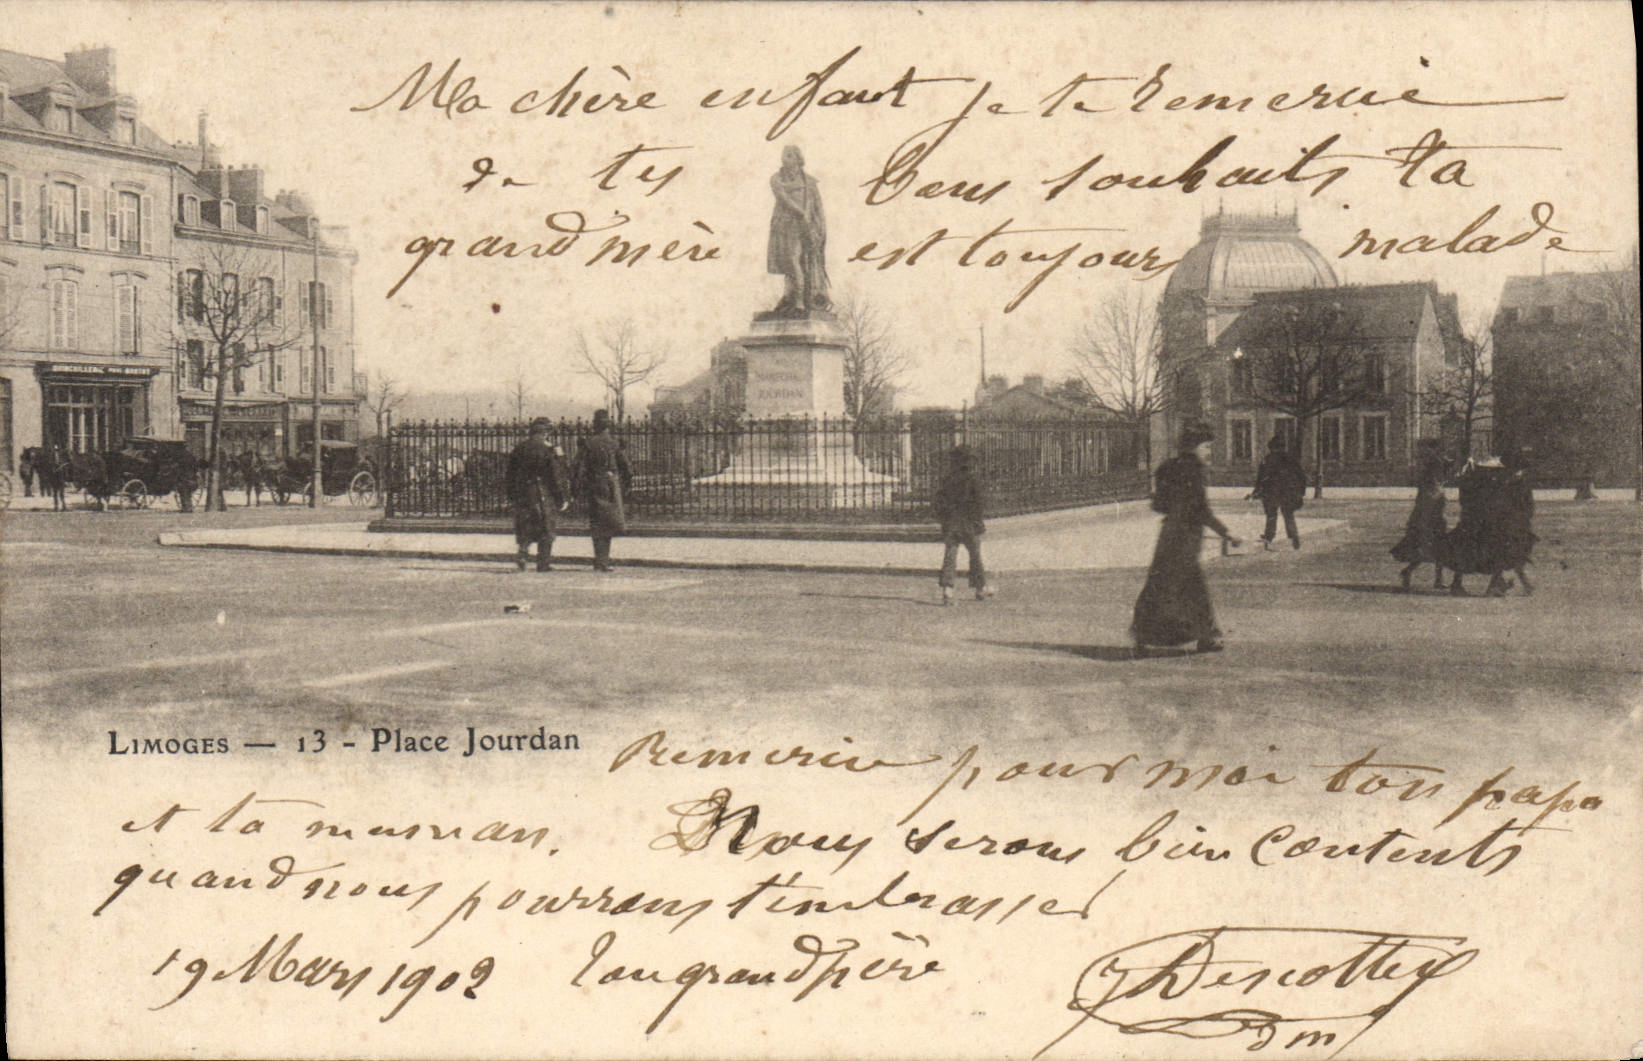 Ma chère enfant je te remercie
de tes bons souhaits ta
grand mère est toujours malade
JOURDAN
LIMOGES — 13 - Place Jourdan
Remercie pour moi ton papa
et ta maman. Nous serons bien contents
quand nous pourrons t'embrasser
19 Mars 1902 Ton grand père
Descottes